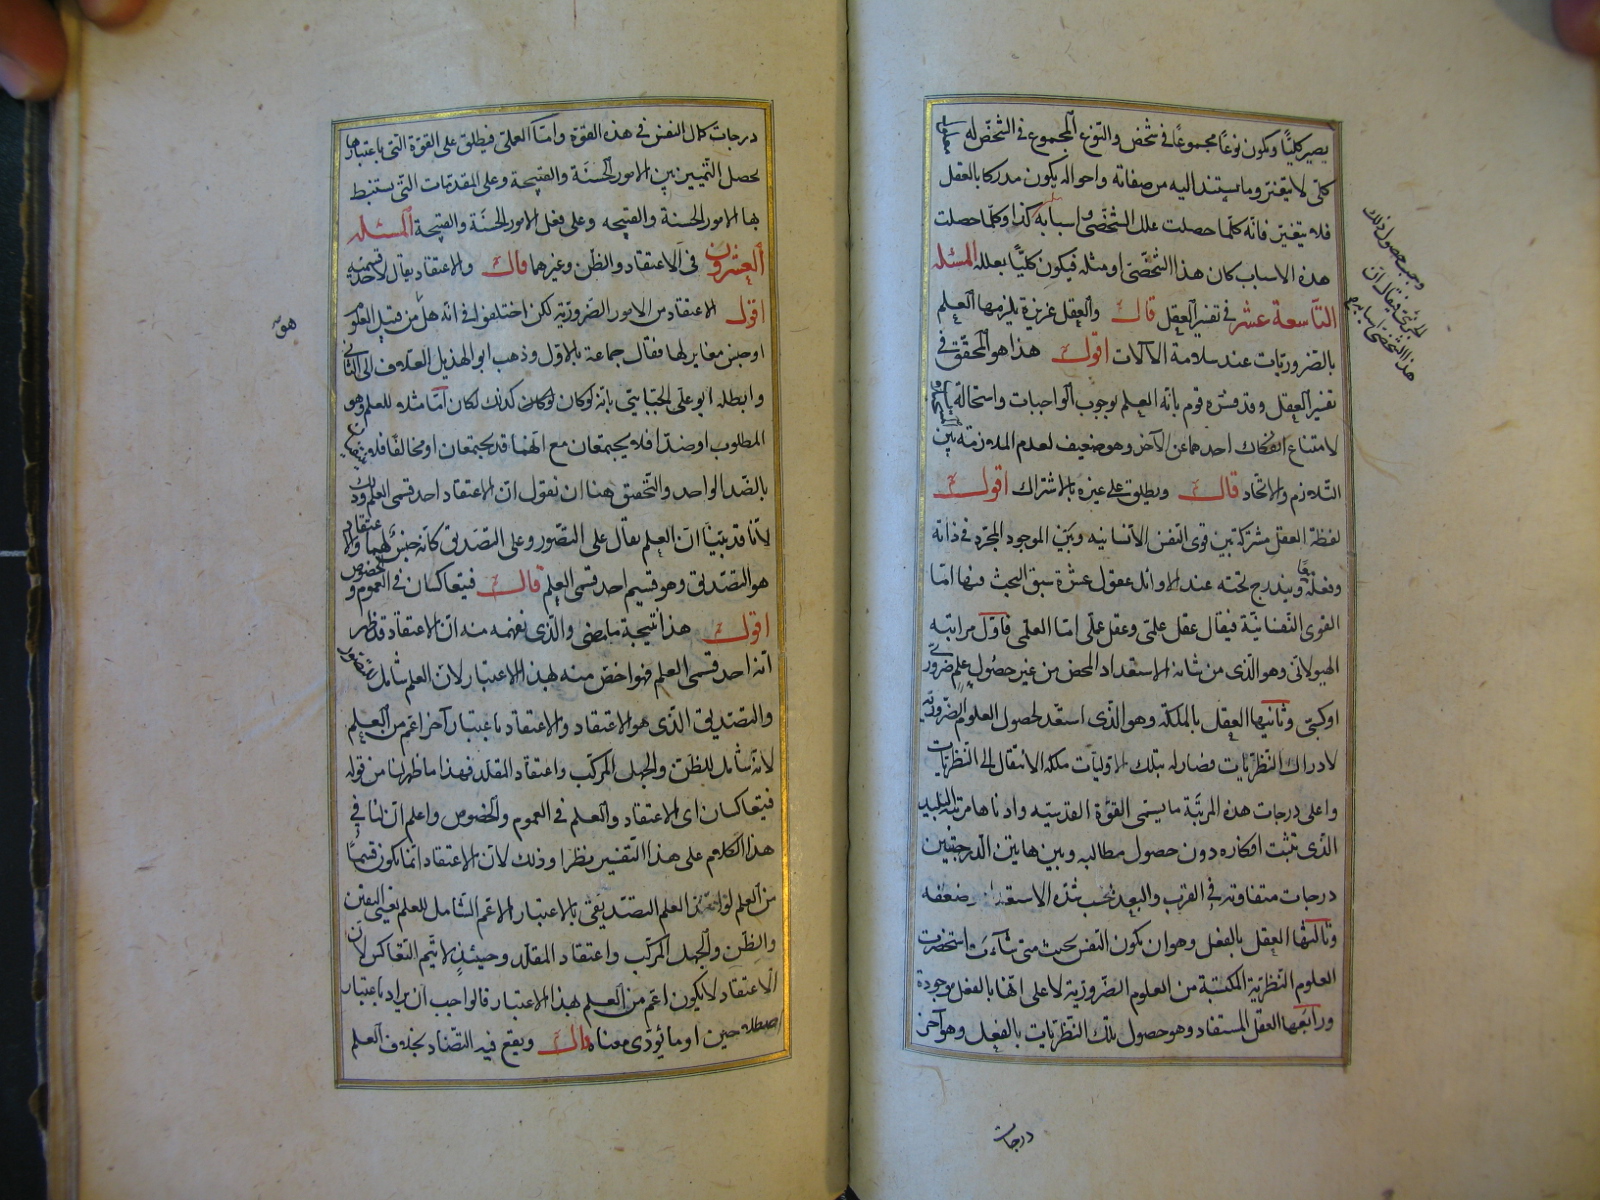 يصير كليًّا ويكون نوعًا مجموعًا في شخص والنوع المجموع في الشخص له معلول
كلّي لا يتغيّر وما يستند اليه من صفاته واحواله يكون مدركا بالعقل
فلا يتغيّر فانّه كلّما حصلت علل الشخصي واسبابه كذا وكلّما حصلت
هذه الاسباب كان هذا الشخصي او مثله فيكون كليًّا بعلله المسئلة
التاسعة عشر في تفسير العقل قال والعقل غريزة يلزمها العلم
بالضروريّات عند سلامة الآلات اقول هذا هو المحقّق في
تفسير العقل وقد فسّره قوم بانّه العلم بوجوب الواجبات واستحالة
لامتناع انفكاك احدهما عن الآخر وهو ضعيف لعدم الملازمة بين
التلازم والاتحاد قال ويطلق على غيره بالاشتراك اقول
لفظة العقل مشتركة بين قوى النفس الانسانيه وبين الموجود المجرّد في ذاته
وفعله معًا ويندرج تحته عند الاوائل عقول عشرة سبق البحث فيها امّا
القوى النفسانيّة فيقال عقل علمي وعقل عملي امّا العلمي فاوّل مراتبه
الهيولاني وهو الذي من شانه الاستعداد المحض من غير حصول علم ضروري
او كسبي وثانيها العقل بالملكة وهو الذي استعدّ لحصول العلوم الضروريّة
لادراك النظريّات فصار له بتلك الاوّليّات ملكة الانتقال الى النظريّات
واعلى درجات هذه المرتبة ما يسمى القوّة القدسيّه وادناها مرتبة البليد
الذي تثبت افكاره دون حصول مطالبه وبين هاتين الدرجتين
درجات متفاوتة في القرب والبعد بحسب شدّة الاستعداد وضعفه
وثالثها العقل بالفعل وهو ان يكون النفس بحيث متى شاءت استحضرت
العلوم النظريّة المكتسبة من العلوم الضروريّة لا على انّها بالفعل موجودة
ورابعها العقل المستفاد وهو حصول تلك النظريّات بالفعل وهو آخر
درجات
وجب حصول ذلك
الجزئي فيقال ان
هذا الشخصي اسبابه
درجات كمال النفس في هذه القوّة وامّا العملي فيطلق على القوّة التي باعتبارها
يحصل التمييز بين الامور الحسنة والقبيحة وعلى المقدّمات التي يستنبط
بها الامور الحسنة والقبيحه وعلى فعل الامور الحسنة والقبيحة المسئلة
العشرون في الاعتقاد والظنّ وغيرها قال والاعتقاد يقال لاحد قسميه
اقول الاعتقاد من الامور الضروريّة لكن اختلفوا في انّه هل من قبيل العلوم
او جنس مغاير لها فقال جماعة بالاوّل وذهب ابو الهذيل العلاّف الى الثاني
وابطله ابو علي الجبّايي بانّه لو كان كذلك لكان امّا مثلا للعلم وهو
المطلوب او ضدّا فلا يجتمعان مع انّهما قد يجتمعان او مخالفا فلا
بالضدّ الواحد والتحقيق هنا ان نقول انّ الاعتقاد احد قسمي العلم وذلك
لانّا قد بيّنا انّ العلم يقال على التصوّر وعلى التصديق كانّه جنس لهما والاعتقاد
هو التصديق وهو قسيم احد قسمي العلم قال فيتعاكسان في العموم والخصوص
اقول هذا نتيجة ما مضى والذي نفهمه منه انّ الاعتقاد قد ظهر
انّه احد قسمي العلم فهو اخصّ منه بهذا الاعتبار لانّ العلم شامل للتصوّر
والتصديق الذي هو الاعتقاد والاعتقاد باعتبار آخر اعمّ من العلم
لانّه شامل للظنّ والجهل المركّب واعتقاد المقلّد فهذا ما ظهر لنا من قوله
فيتعاكسان اي الاعتقاد والعلم في العموم والخصوص واعلم انّ لنا في
هذا الكلام على هذا التفسير نظرا وذلك لانّ الاعتقاد انّما يكون قسمًا
من العلم لو العلم التصديقي بالاعتبار الاعمّ الشامل للعلم يعني اليقين
والظنّ والجهل المركّب واعتقاد المقلّد وحينئذٍ لا يتمّ التعاكس لانّ
الاعتقاد لا يكون اعمّ من العلم بهذا الاعتبار فالواجب ان يراد باعتبار
اصطلاحين او ما يؤدّى معناه قال ويقع فيه التضادّ بخلاف العلم